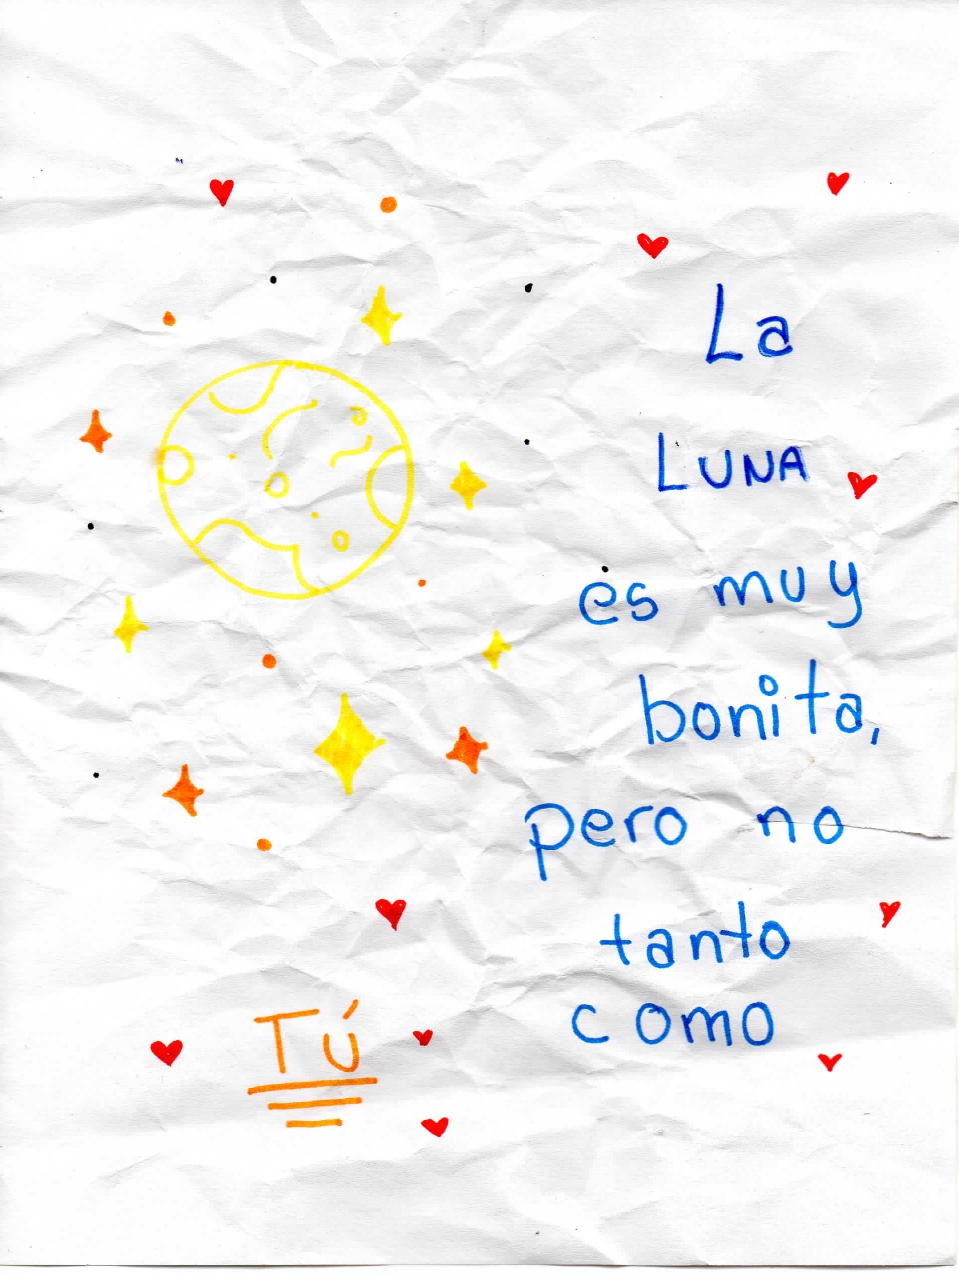 La
LUNA
es muy
bonita,
pero no
tanto
como
Tú